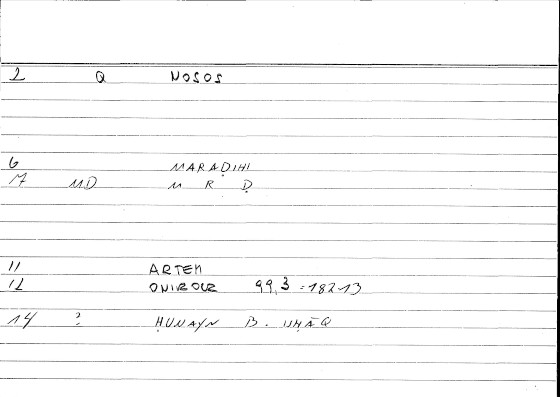 2 Q NOSOS
6 MARAḌIHI
7 MD M R Ḍ
11 ARTEM
12 ONIROCR 99,3 = 182 13
14 ? ḤUNAYN B. ISḤĀQ